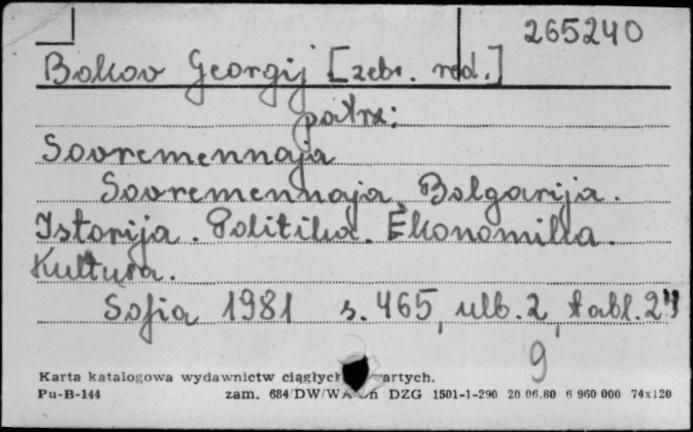 265240
Bokov Georgij [zebr. red.]
patrz:
Sovremennaja
Sovremennaja Bolgarija.
Istorija. Politika. Ėkonomika.
Kultura.
Sofia 1981 s. 465, ulb. 2, tabl. 24
9
Karta katalogowa wydawnictw ciągłych
Pu-B-144 zam. 684/DW/WA DZG 1501-1-290 20.06.80 6 960 000 74x120